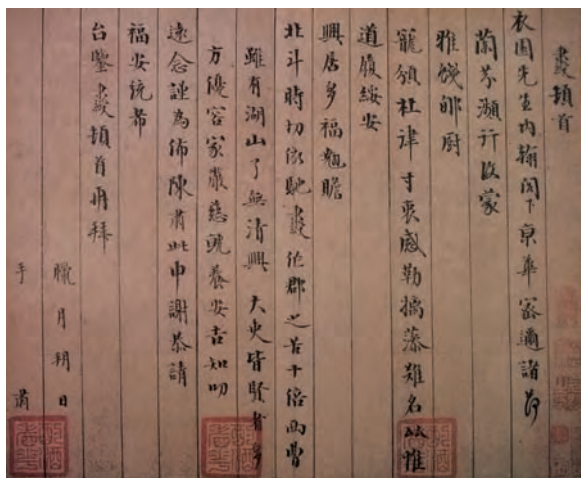 夔頓首
衣園先生內翰閣下京華密邇諸
蘭芬瀕行蒙
雅餞郇廚
寵頒杜律寸衷感勒摛藻難名比惟
道履綏安
興居多福翹瞻
北斗時切依馳夔作郡之苦十倍西曹
雖有湖山了無清興 大吏皆賢多
方優容家嚴慈就養安吉知叨
遠念謹為佈陳肅此申謝恭請
福安統希
台鑒夔頓首再拜
臘月朔日
手肅